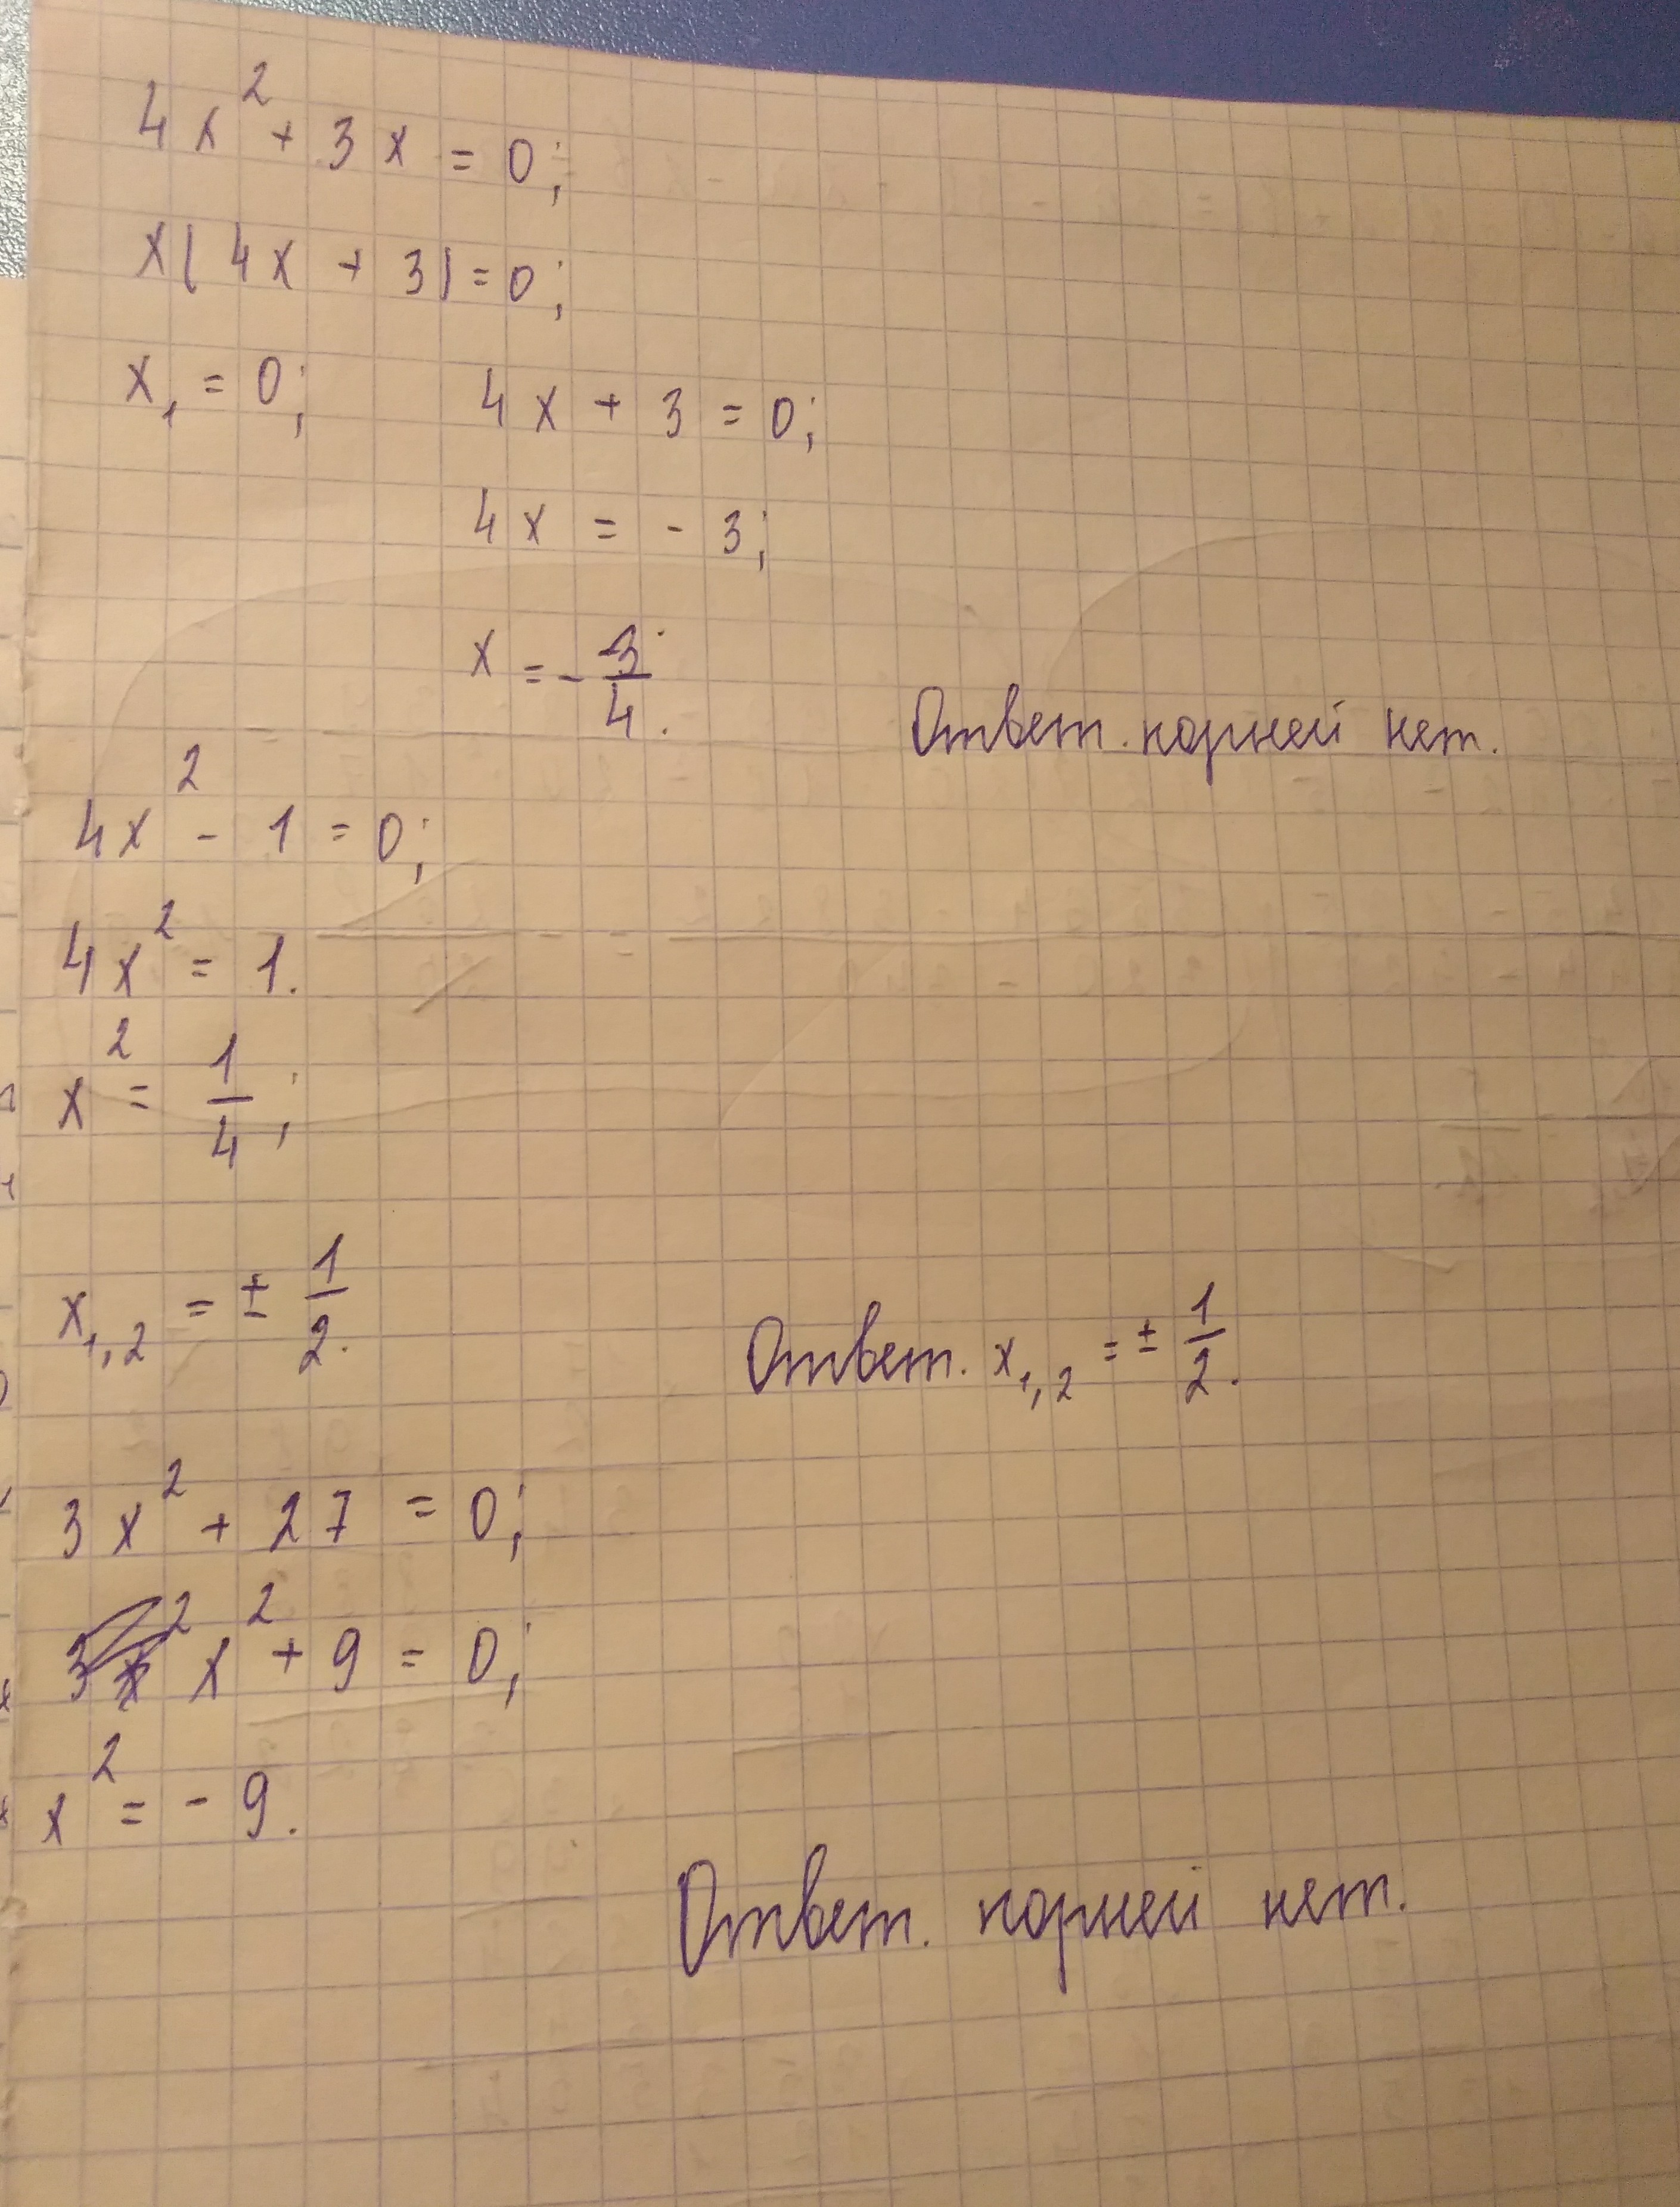 4x² + 3x = 0;
x(4x + 3) = 0;
x₁ = 0; 4x + 3 = 0;
4x = - 3;
x = - 3/4.
Ответ. корней нет.
4x² - 1 = 0;
4x² = 1.
x² = 1/4;
x₁,₂ = ± 1/2.
Ответ. x₁,₂ = ± 1/2.
3x² + 27 = 0;
x² + 9 = 0;
x² = - 9.
Ответ. корней нет.